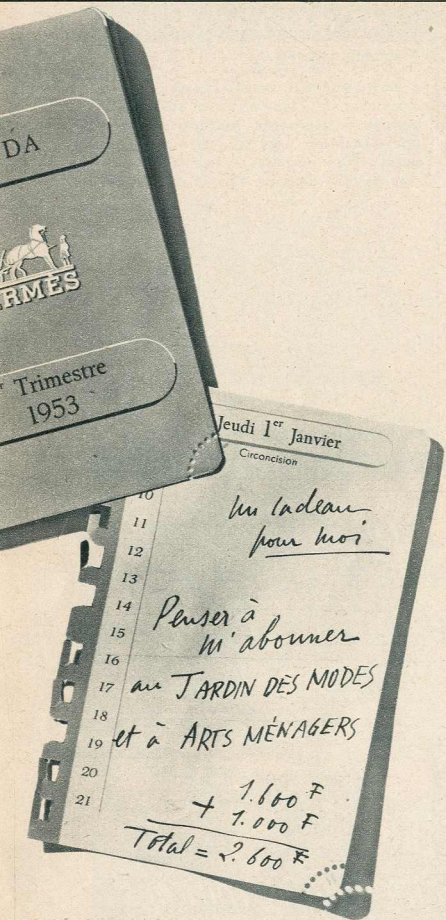 DA
ERMÈS
r Trimestre
1953
Jeudi 1er Janvier
Circoncision
10
11
12
13
14
15
16
17
18
19
20
21
Un cadeau
pour moi
Penser à
m'abonner
au JARDIN DES MODES
et à ARTS MÉNAGERS
1.600 F
+ 1.000 F
Total = 2.600 F